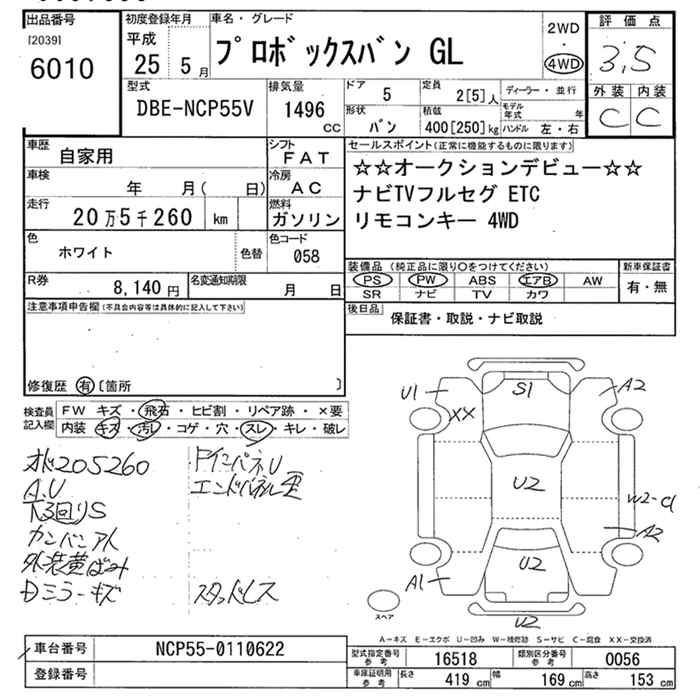 出品番号
[2039]
6010
初度登録年月
平成
25年5月
車名・グレード
プロボックスバン GL
2WD
・
4WD
評価点
3.5
外装 内装
C C
型式
DBE-NCP55V
排気量
1496
CC
ドア
5
定員
2[5]人
形状
バン
積載
400[250]kg
ディーラー・並行
モデル年式 年
ハンドル 左・右
車歴
自家用
シフト
FAT
車検
年 月( 日)
冷房
AC
走行
20万5千260 km
燃料
ガソリン
色
ホワイト
色替
色コード
058
R券
8,140円
名変通知期限
月 日
セールスポイント(正常に機能するものに限ります)
☆☆オークションデビュー☆☆
ナビTVフルセグ ETC
リモコンキー 4WD
装備品 (純正品に限り○をつけてください)
PS PW ABS エアB AW
SR ナビ TV カワ
新車保証書
有・無
後日品
保証書・取説・ナビ取説
注意事項申告欄(不具合内容等は具体的に記入して下さい)
修復歴 有 [箇所 ]
検査員記入欄
FW キズ・飛石・ヒビ割・リペア跡・×要
内装 キズ・汚レ・コゲ・穴・スレ・キレ・破レ
205260
A.U
下回りS
カンバンアト
外装黄ばみ
Dミラーキズ
エンドパネル歪
スタッドレス
U1
XX
S1
A2
U2
W2-C1
A2
U2
A1
U2
スペア
A-キズ E-エクボ U-凹み W-補修跡 S-サビ C-腐食 XX-交換済
車台番号
NCP55-0110622
登録番号
型式指定番号
参考
16518
類別区分番号
参考
0056
車庫証明用
参考
長さ
419 cm
幅
169 cm
高さ
153 cm